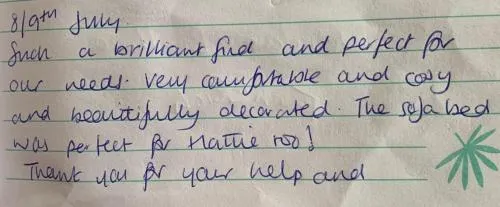 8/9th July.
Such a brilliant find and perfect for
our needs. Very comfortable and cosy
and beautifully decorated. The sofa bed
was perfect for Hattie too!
Thank you for your help and